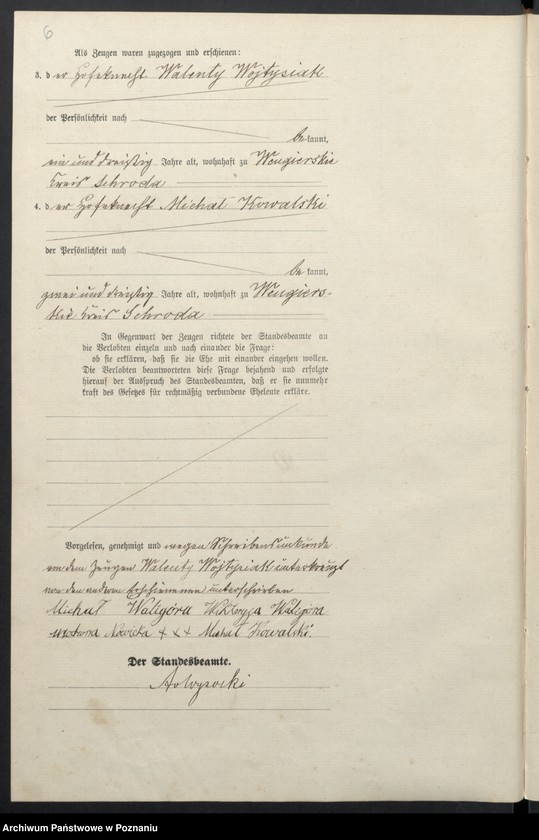 6
Als Zeugen waren zugezogen und erschienen:
3. der Hofeknecht Walenty Wojtysiak
der Persönlichkeit nach
bekannt,
ein und dreißig Jahre alt, wohnhaft zu Wengierskie
Kreis Schroda
4. der Hofeknecht Michal Kowalski
der Persönlichkeit nach
bekannt,
zwei und dreißig Jahre alt, wohnhaft zu Wengiers-
kie Kreis Schroda
In Gegenwart der Zeugen richtete der Standesbeamte an
die Verlobten einzeln und nach einander die Frage:
ob sie erklären, daß sie die Ehe mit einander eingehen wollen.
Die Verlobten beantworteten diese Frage bejahend und erfolgte
hierauf der Ausspruch des Standesbeamten, daß er sie nunmehr
kraft des Gesetzes für rechtmäßig verbundene Eheleute erkläre.
Vorgelesen, genehmigt und wegen Schreibensunkunde
von dem Zeugen Walenty Wojtysiak unterkreuzt
von den anderen Erschienenen unterschrieben
Michał Waligóra Waligóra
Nowicka + + + Michał Kowalski.
Der Standesbeamte.
Archiwum Państwowe w Poznaniu